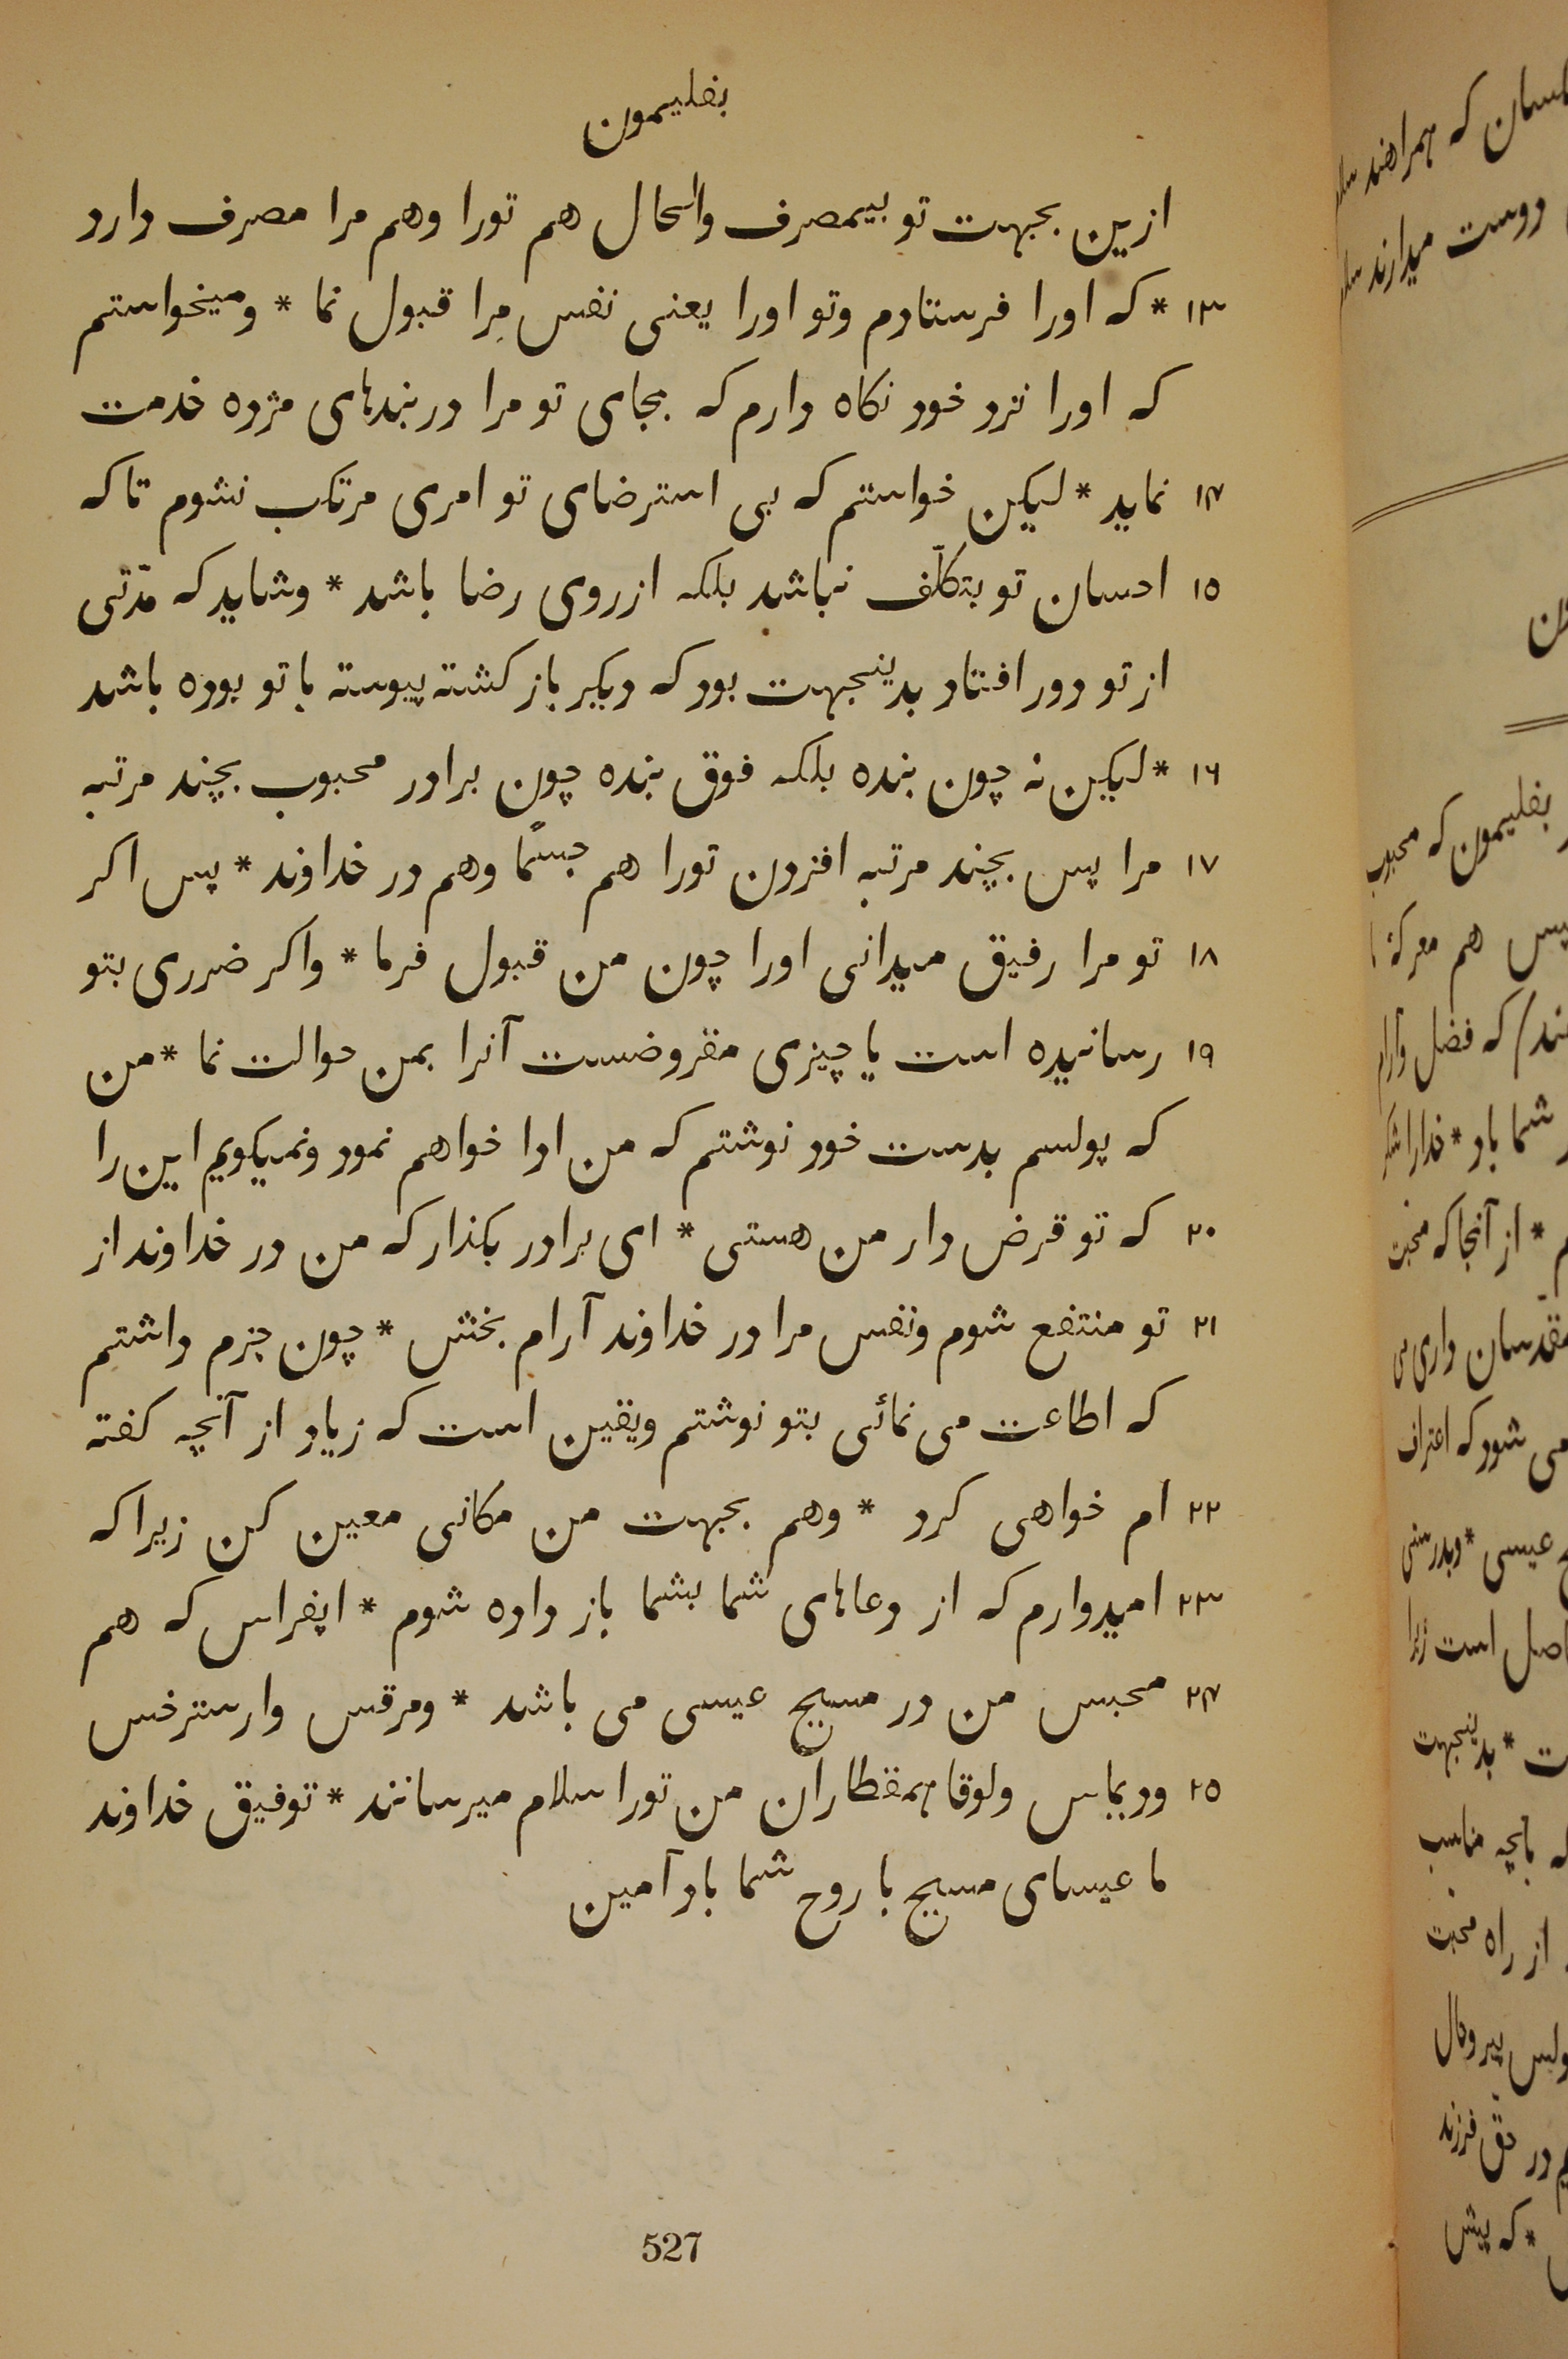 بفلیمون
ازین بجهت تو بیمصرف والحال هم تورا وهم مرا مصرف دارد
١٣ * که اورا فرستادم وتو اورا یعنی نفس مرا قبول نما * ومیخواستم
که اورا نزد خود نکاه دارم که بجای تو مرا در بندهای مژده خدمت
١۴ نماید * لیکن خواستم که بی استرضای تو امری مرتکب نشوم تا که
١٥ احسان تو بتکلّف نباشد بلکه از روی رضا باشد * وشاید که مدّتی
از تو دور افتاد بدینجهت بود که دیکر باز کشته پیوسته با تو بوده باشد
١٦ * لیکن نه چون بنده بلکه فوق بنده چون برادر محبوب بچند مرتبه
١٧ مرا پس بچند مرتبه افزون تورا هم جسمًا وهم در خداوند * پس اکر
١٨ تو مرا رفیق میدانی اورا چون من قبول فرما * واکر ضرری بتو
١٩ رسانیده است یا چیزی مقروضست آنرا بمن حوالت نما * من
که پولسم بدست خود نوشتم که من ادا خواهم نمود ونمیکویم این را
٢٠ که تو قرض دار من هستی * ای برادر بکذار که من در خداوند از
٢١ تو منتفع شوم ونفس مرا در خداوند آرام بخش * چون جزم داشتم
که اطاعت می نمائی بتو نوشتم ویقین است که زیاد از آنچه کفته
٢٢ ام خواهی کرد * وهم بجهت من مکانی معین کن زیرا که
٢٣ امیدوارم که از دعاهای شما بشما باز داده شوم * اپفراس که هم
٢۴ محبس من در مسیح عیسی می باشد * ومرقس وارسترخس
٢٥ ودیماس ولوقا همقطاران من تورا سلام میرسانند * توفیق خداوند
ما عیسای مسیح با روح شما باد آمین
527
که همراهند
دوست میدارند
بفلیمون که محبوب
پس هم معرکهٔ
که فضل وآرام
شما باد * خدارا شکر
* از آنجا که محبت
مقدسان داری
می شود که اعتراف
عیسی * وبدرستی
است زیرا
* بدینجهت
بآنچه مناسب
از راه محبت
پیر
در حق فرزند
* که پیش